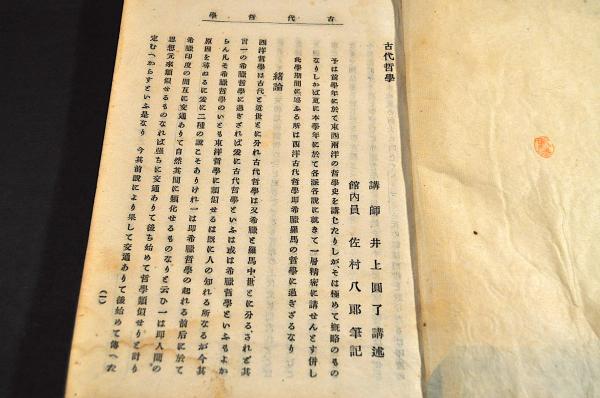 古代哲學
古代哲學
講師 井上圓了 講述
館內員 佐村八郎 筆記
予は前學年に於て東西兩洋の哲學史を講じたりしが、そは極めて概略のもの
なりしかば更に本學年に於て各派各說に就きて一層精密に講せんとす併し
此學期間に述ふる所は西洋古代哲學卽希臘羅馬の哲學に過ぎざるなり
緖論
西洋哲學は古代と近世とに分れ古代哲學は又希臘と羅馬中世とに分る、されど其
言一の希臘哲學に過ぎざれば玆に古代哲學といふは或は希臘哲學といふもよか
らん凡そ希臘哲學のいとも東洋哲學に類似せるは旣に人の知れる所なるが今其
原因を尋ぬるに玆に二種の說こそありけれ一は卽希臘哲學の起れる前后に於て
希臘印度の間互に交通ありて自然其間に類化せるものなりと云ひ一は卽人間の
思想元來類似せるものなれば强ちに交通ありて後ち始めて哲學類似せりと計り
定むべからずといふ是なり 今其前說により果して交通ありて後始めて傳へた
(一)